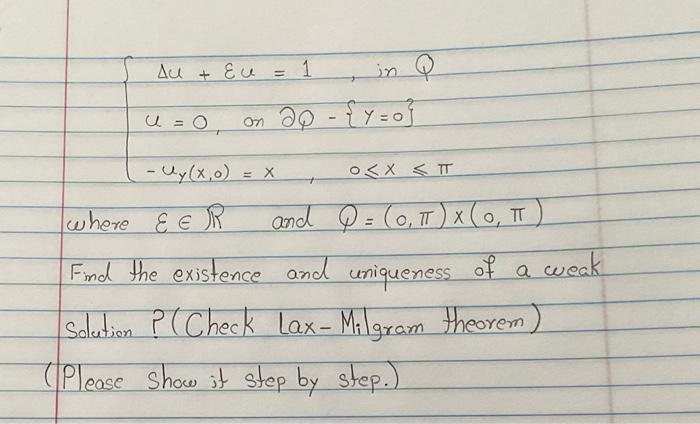 Δu + Ɛu = 1 , in Q
u = 0, on ∂Q - {y=0}
-u_y(x,0) = x , 0≤x≤π
where Ɛ ∈ ℝ and Q = (0,π)x(0,π)
Find the existence and uniqueness of a weak
Solution ? (Check Lax-Milgram theorem)
(Please show it step by step.)